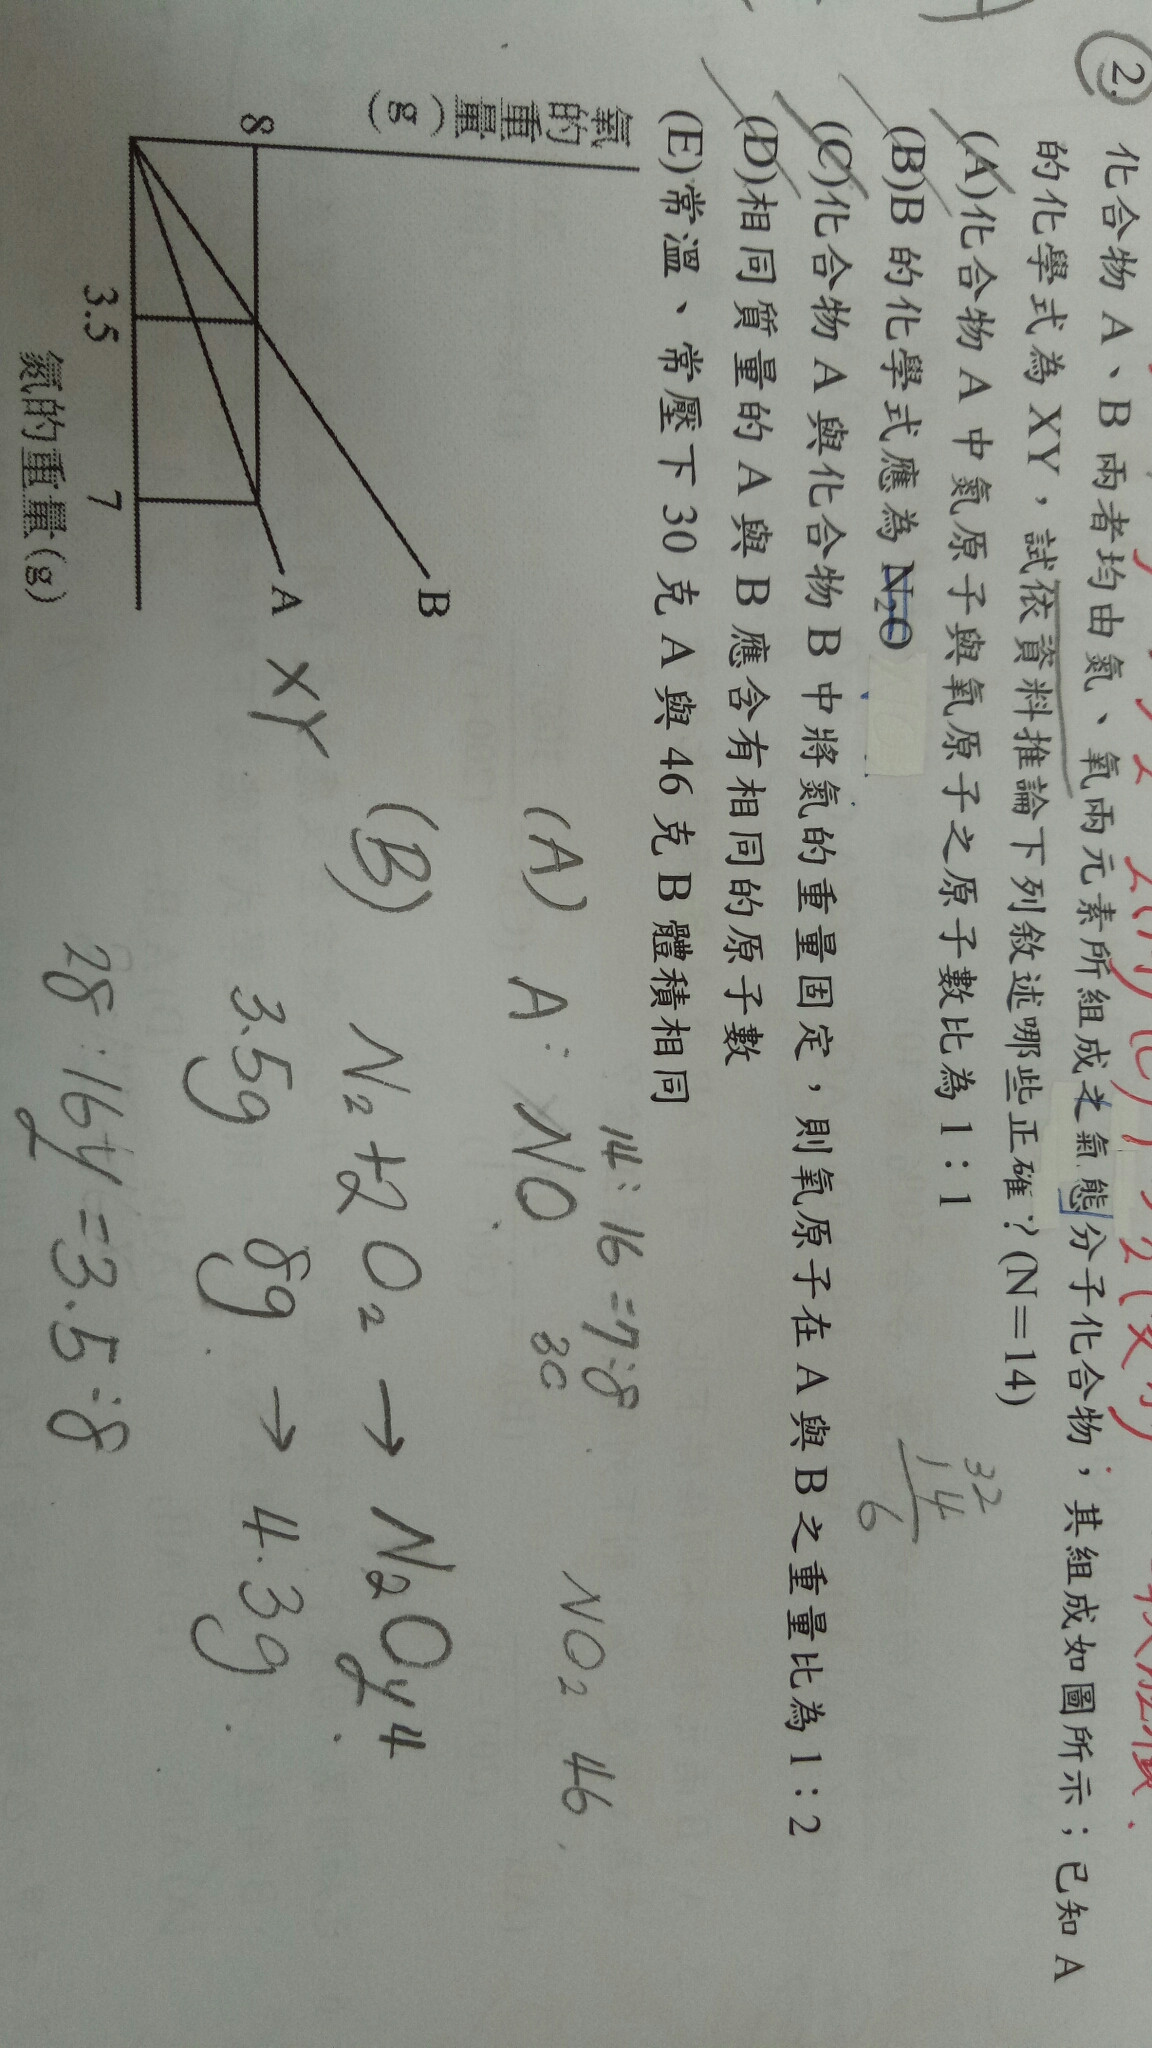 2. 化合物 A、B 兩者均由氮、氧兩元素所組成之氣態分子化合物，其組成如圖所示；已知 A
的化學式為 XY，試依資料推論下列敘述哪些正確？(N=14)
(A)化合物 A 中氮原子與氧原子之原子數比為 1：1
(B)B 的化學式應為 N₂O
(C)化合物 A 與化合物 B 中將氮的重量固定，則氧原子在 A 與 B 之重量比為 1：2
(D)相同質量的 A 與 B 應含有相同的原子數
(E)常溫、常壓下 30 克 A 與 46 克 B 體積相同
32
14
6
氧的重量(g)
8
B
A
3.5
7
氮的重量(g)
XY
14:16=7:8
(A) A: NO
30
NO₂ 46
(B) N₂+2O₂ → N₂Oy 4
2
3.5g 8g → 4.3g
28:16y=3.5:8
2